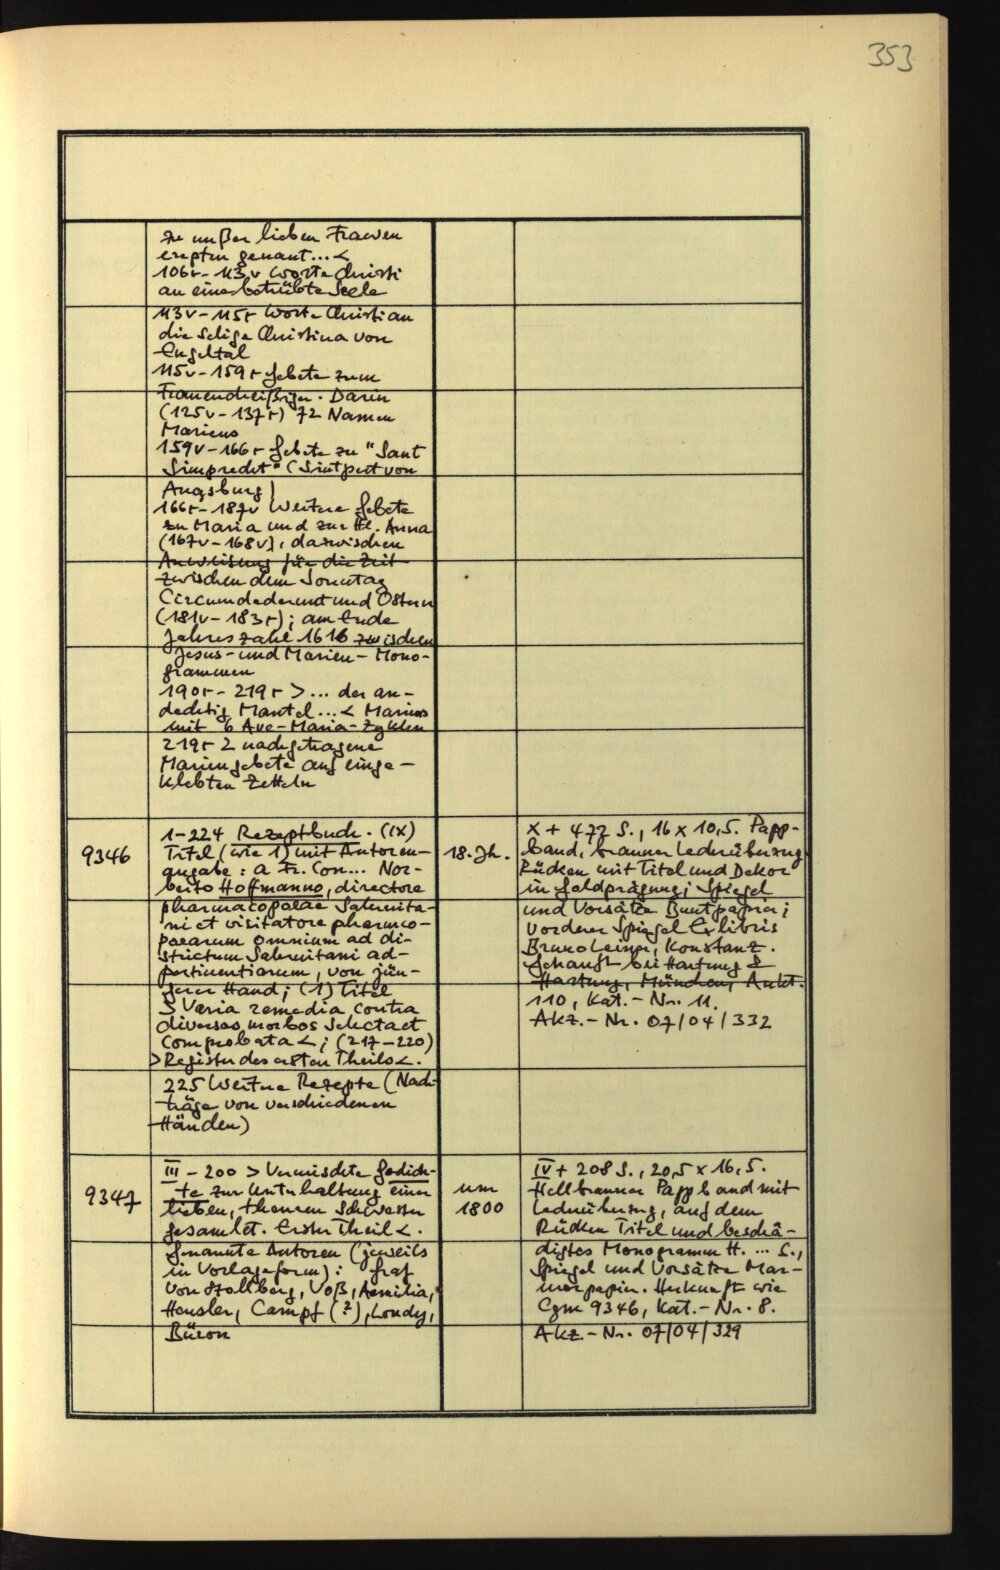 353
zu unßer lieben Frawen
ereptin genant...<
106r-113v Worte Christi
an eine betrübte Seele
113v-115r Worte Christi an
die selige Christina von
Engeltal
115v-159r Gebete zum
Frauendreißiger. Darin
(125v-137r) 72 Namen
Mariens
159v-166r Gebete zu "Sant
Simprecht" (Sintpert von
Augsburg)
166r-187v Weitere Gebete
zu Maria und zur Hl. Anna
(167v-168v), dazwischen
Anweisung für die Zeit
zwischen dem Sonntag
Circumdederunt und Ostern
(181v-183r); am Ende
Jahreszahl 1616 zwischen
Jesus- und Marien-Mono-
grammen
190r-219r >... der an-
dechtig Mantel...< Mariens
mit 6 Ave-Maria-Zyklen
219r 2 nachgetragene
Mariengebete auf einge-
klebten Zetteln
9346
1-224 Rezeptbuch. (IX)
Titel (wie 1) mit Autoren-
angabe: a Fr. Con... Nor-
berto Hoffmanno, directore
pharmacopolae Salmita-
ni et visitatore pharmco-
poearum omnium ad di-
strictum Salmitani ad-
pertinentiarum, von jün-
gerer Hand; (1) Titel
>Varia remedia contra
diversos morbos selecta et
comprobata<; (217-220)
>Register des ersten Theils<.
225 Weitere Rezepte (Nach-
träge von verschiedenen
Händen)
18. Jh.
X + 477 S., 16 x 10,5. Papp-
band, brauner Lederüberzug
Rücken mit Titel und Dekor
in Goldprägung; Spiegel
und Vorsätze Buntpapier;
vorderer Spiegel Exlibris
Bruno Leiner, Konstanz.
Gekauft bei Hartung &
Hartung, München, Aukt.
110, Kat.-Nr. 11.
Akz.-Nr. 07/04/332
9347
III-200 >Vermischte Gedich-
te zur Unterhaltung einer
lieben, theuren Schwester
gesamlet. Erster Theil<.
Genannte Autoren (jeweils
in Vorlageform): Graf
von Stollberg, Voß, Aemilia,
Hensler, Campf (?), Londy,
Büron
um
1800
IV + 208 S., 20,5 x 16,5.
Hellbrauner Pappband mit
Lederüberzug, auf dem
Rücken Titel und beschä-
digtes Monogramm H. ... S.,
Spiegel und Vorsätze Mar-
morpapier. Herkunft wie
Cgm 9346, Kat.-Nr. 8.
Akz.-Nr. 07/04/329